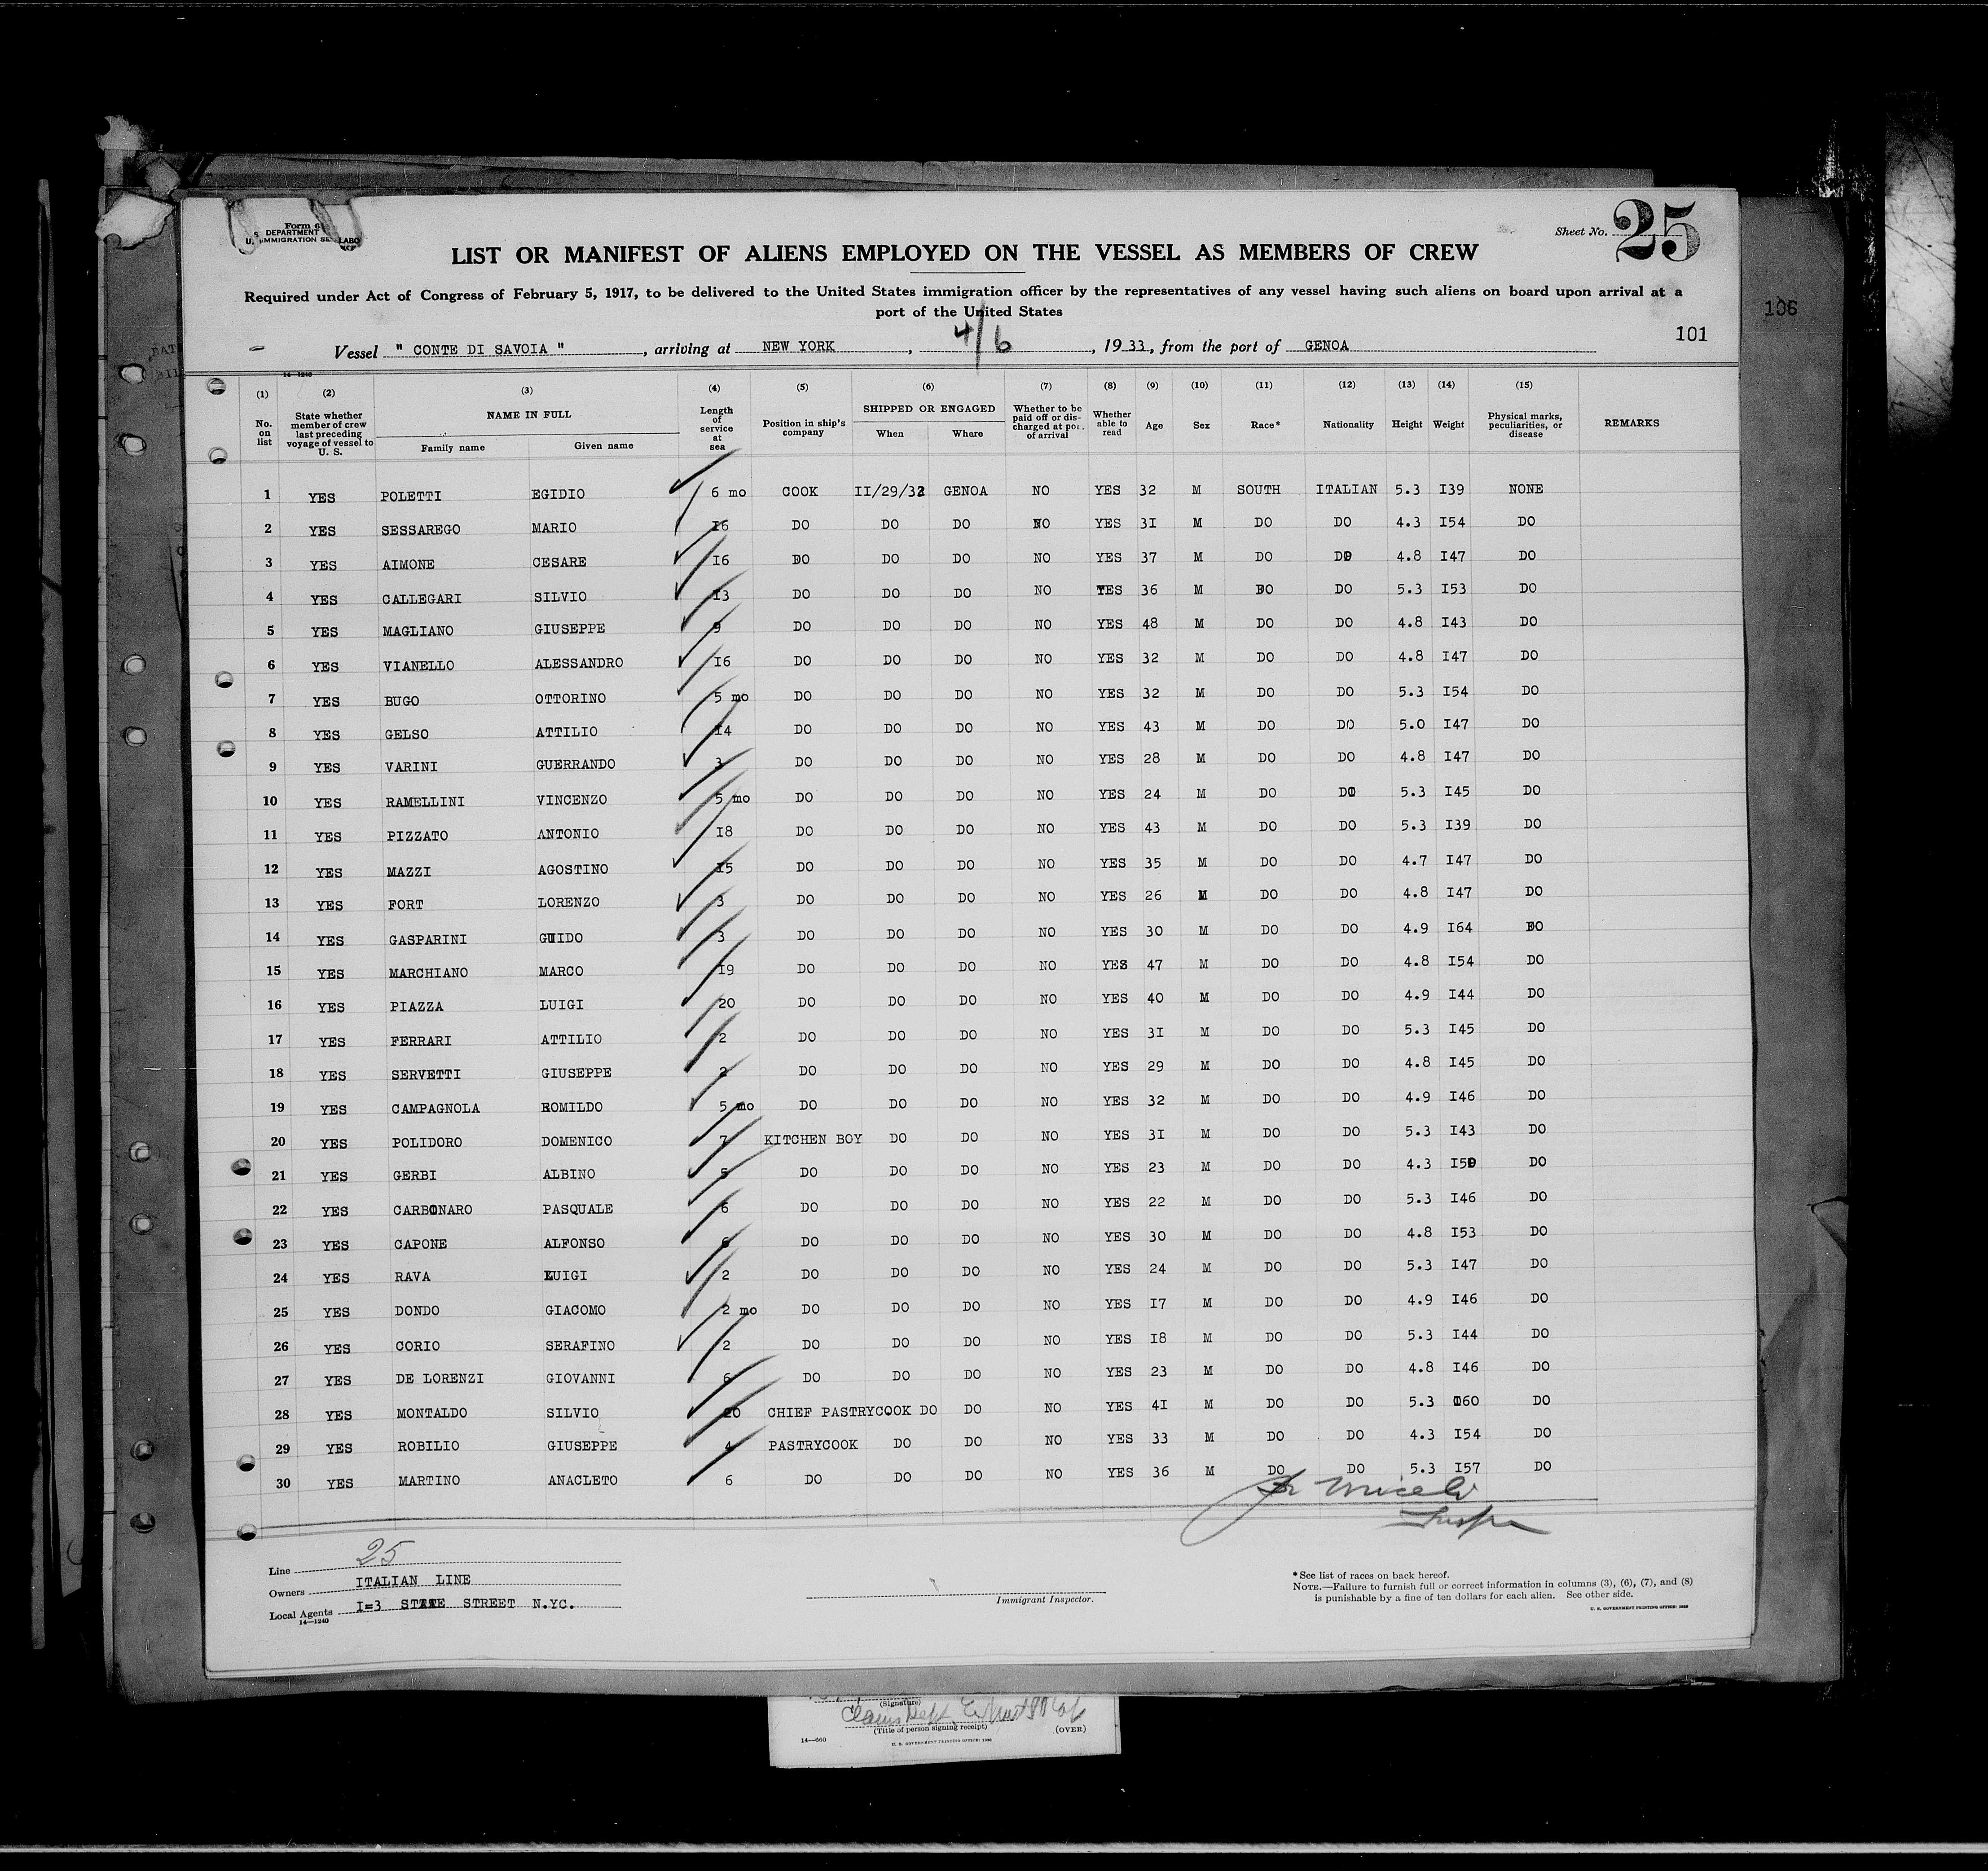 Form 6
U. S. DEPARTMENT LABO
IMMIGRATION SE
Sheet No. 25
LIST OR MANIFEST OF ALIENS EMPLOYED ON THE VESSEL AS MEMBERS OF CREW
Required under Act of Congress of February 5, 1917, to be delivered to the United States immigration officer by the representatives of any vessel having such aliens on board upon arrival at a
port of the United States
106
101
Vessel " CONTE DI SAVOIA ", arriving at NEW YORK, 4/6, 1933, from the port of GENOA
14—1240
(1) (2) (3) (4) (5) (6) (7) (8) (9) (10) (11) (12) (13) (14) (15)
No. on list State whether member of crew last preceding voyage of vessel to U. S. NAME IN FULL Family name Given name Length of service at sea Position in ship's company SHIPPED OR ENGAGED When Where Whether to be paid off or discharged at port of arrival Whether able to read Age Sex Race* Nationality Height Weight Physical marks, peculiarities, or disease REMARKS
1 YES POLETTI EGIDIO 6 mo COOK II/29/32 GENOA NO YES 32 M SOUTH ITALIAN 5.3 I39 NONE
2 YES SESSAREGO MARIO I6 DO DO DO NO YES 3I M DO DO 4.3 I54 DO
3 YES AIMONE CESARE I6 DO DO DO NO YES 37 M DO DO 4.8 I47 DO
4 YES CALLEGARI SILVIO I3 DO DO DO NO YES 36 M DO DO 5.3 I53 DO
5 YES MAGLIANO GIUSEPPE 9 DO DO DO NO YES 48 M DO DO 4.8 I43 DO
6 YES VIANELLO ALESSANDRO I6 DO DO DO NO YES 32 M DO DO 4.8 I47 DO
7 YES BUGO OTTORINO 5 mo DO DO DO NO YES 32 M DO DO 5.3 I54 DO
8 YES GELSO ATTILIO I4 DO DO DO NO YES 43 M DO DO 5.0 I47 DO
9 YES VARINI GUERRANDO 3 DO DO DO NO YES 28 M DO DO 4.8 I47 DO
10 YES RAMELLINI VINCENZO 5 mo DO DO DO NO YES 24 M DO DO 5.3 I45 DO
11 YES PIZZATO ANTONIO I8 DO DO DO NO YES 43 M DO DO 5.3 I39 DO
12 YES MAZZI AGOSTINO I5 DO DO DO NO YES 35 M DO DO 4.7 I47 DO
13 YES FORT LORENZO 3 DO DO DO NO YES 26 M DO DO 4.8 I47 DO
14 YES GASPARINI GUIDO 3 DO DO DO NO YES 30 M DO DO 4.9 I64 DO
15 YES MARCHIANO MARCO I9 DO DO DO NO YES 47 M DO DO 4.8 I54 DO
16 YES PIAZZA LUIGI 20 DO DO DO NO YES 40 M DO DO 4.9 I44 DO
17 YES FERRARI ATTILIO 2 DO DO DO NO YES 3I M DO DO 5.3 I45 DO
18 YES SERVETTI GIUSEPPE 2 DO DO DO NO YES 29 M DO DO 4.8 I45 DO
19 YES CAMPAGNOLA ROMILDO 5 mo DO DO DO NO YES 32 M DO DO 4.9 I46 DO
20 YES POLIDORO DOMENICO 7 KITCHEN BOY DO DO NO YES 3I M DO DO 5.3 I43 DO
21 YES GERBI ALBINO 5 DO DO DO NO YES 23 M DO DO 4.3 DO
22 YES CARBONARO PASQUALE 6 DO DO DO NO YES 22 M DO DO 5.3 I46 DO
23 YES CAPONE ALFONSO 6 DO DO DO NO YES 30 M DO DO 4.8 I53 DO
24 YES RAVA LUIGI 2 DO DO DO NO YES 24 M DO DO 5.3 I47 DO
25 YES DONDO GIACOMO 2 mo DO DO DO NO YES I7 M DO DO 4.9 I46 DO
26 YES CORIO SERAFINO 2 DO DO DO NO YES I8 M DO DO 5.3 I44 DO
27 YES DE LORENZI GIOVANNI 6 DO DO DO NO YES 23 M DO DO 4.8 I46 DO
28 YES MONTALDO SILVIO 20 CHIEF PASTRYCOOK DO DO NO YES 4I M DO DO 5.3 I60 DO
29 YES ROBILIO GIUSEPPE 4 PASTRYCOOK DO DO NO YES 33 M DO DO 4.3 I54 DO
30 YES MARTINO ANACLETO 6 DO DO DO NO YES 36 M DO DO 5.3 I57 DO
Line 25
Owners ITALIAN LINE
Local Agents I=3 STATE STREET N.YC.
14—1240
Immigrant Inspector.
*See list of races on back hereof.
NOTE.—Failure to furnish full or correct information in columns (3), (6), (7), and (8)
is punishable by a fine of ten dollars for each alien. See other side.
U. S. GOVERNMENT PRINTING OFFICE:
(Signature)
(Title of person signing receipt)
(OVER)
14—660
U. S. GOVERNMENT PRINTING OFFICE: